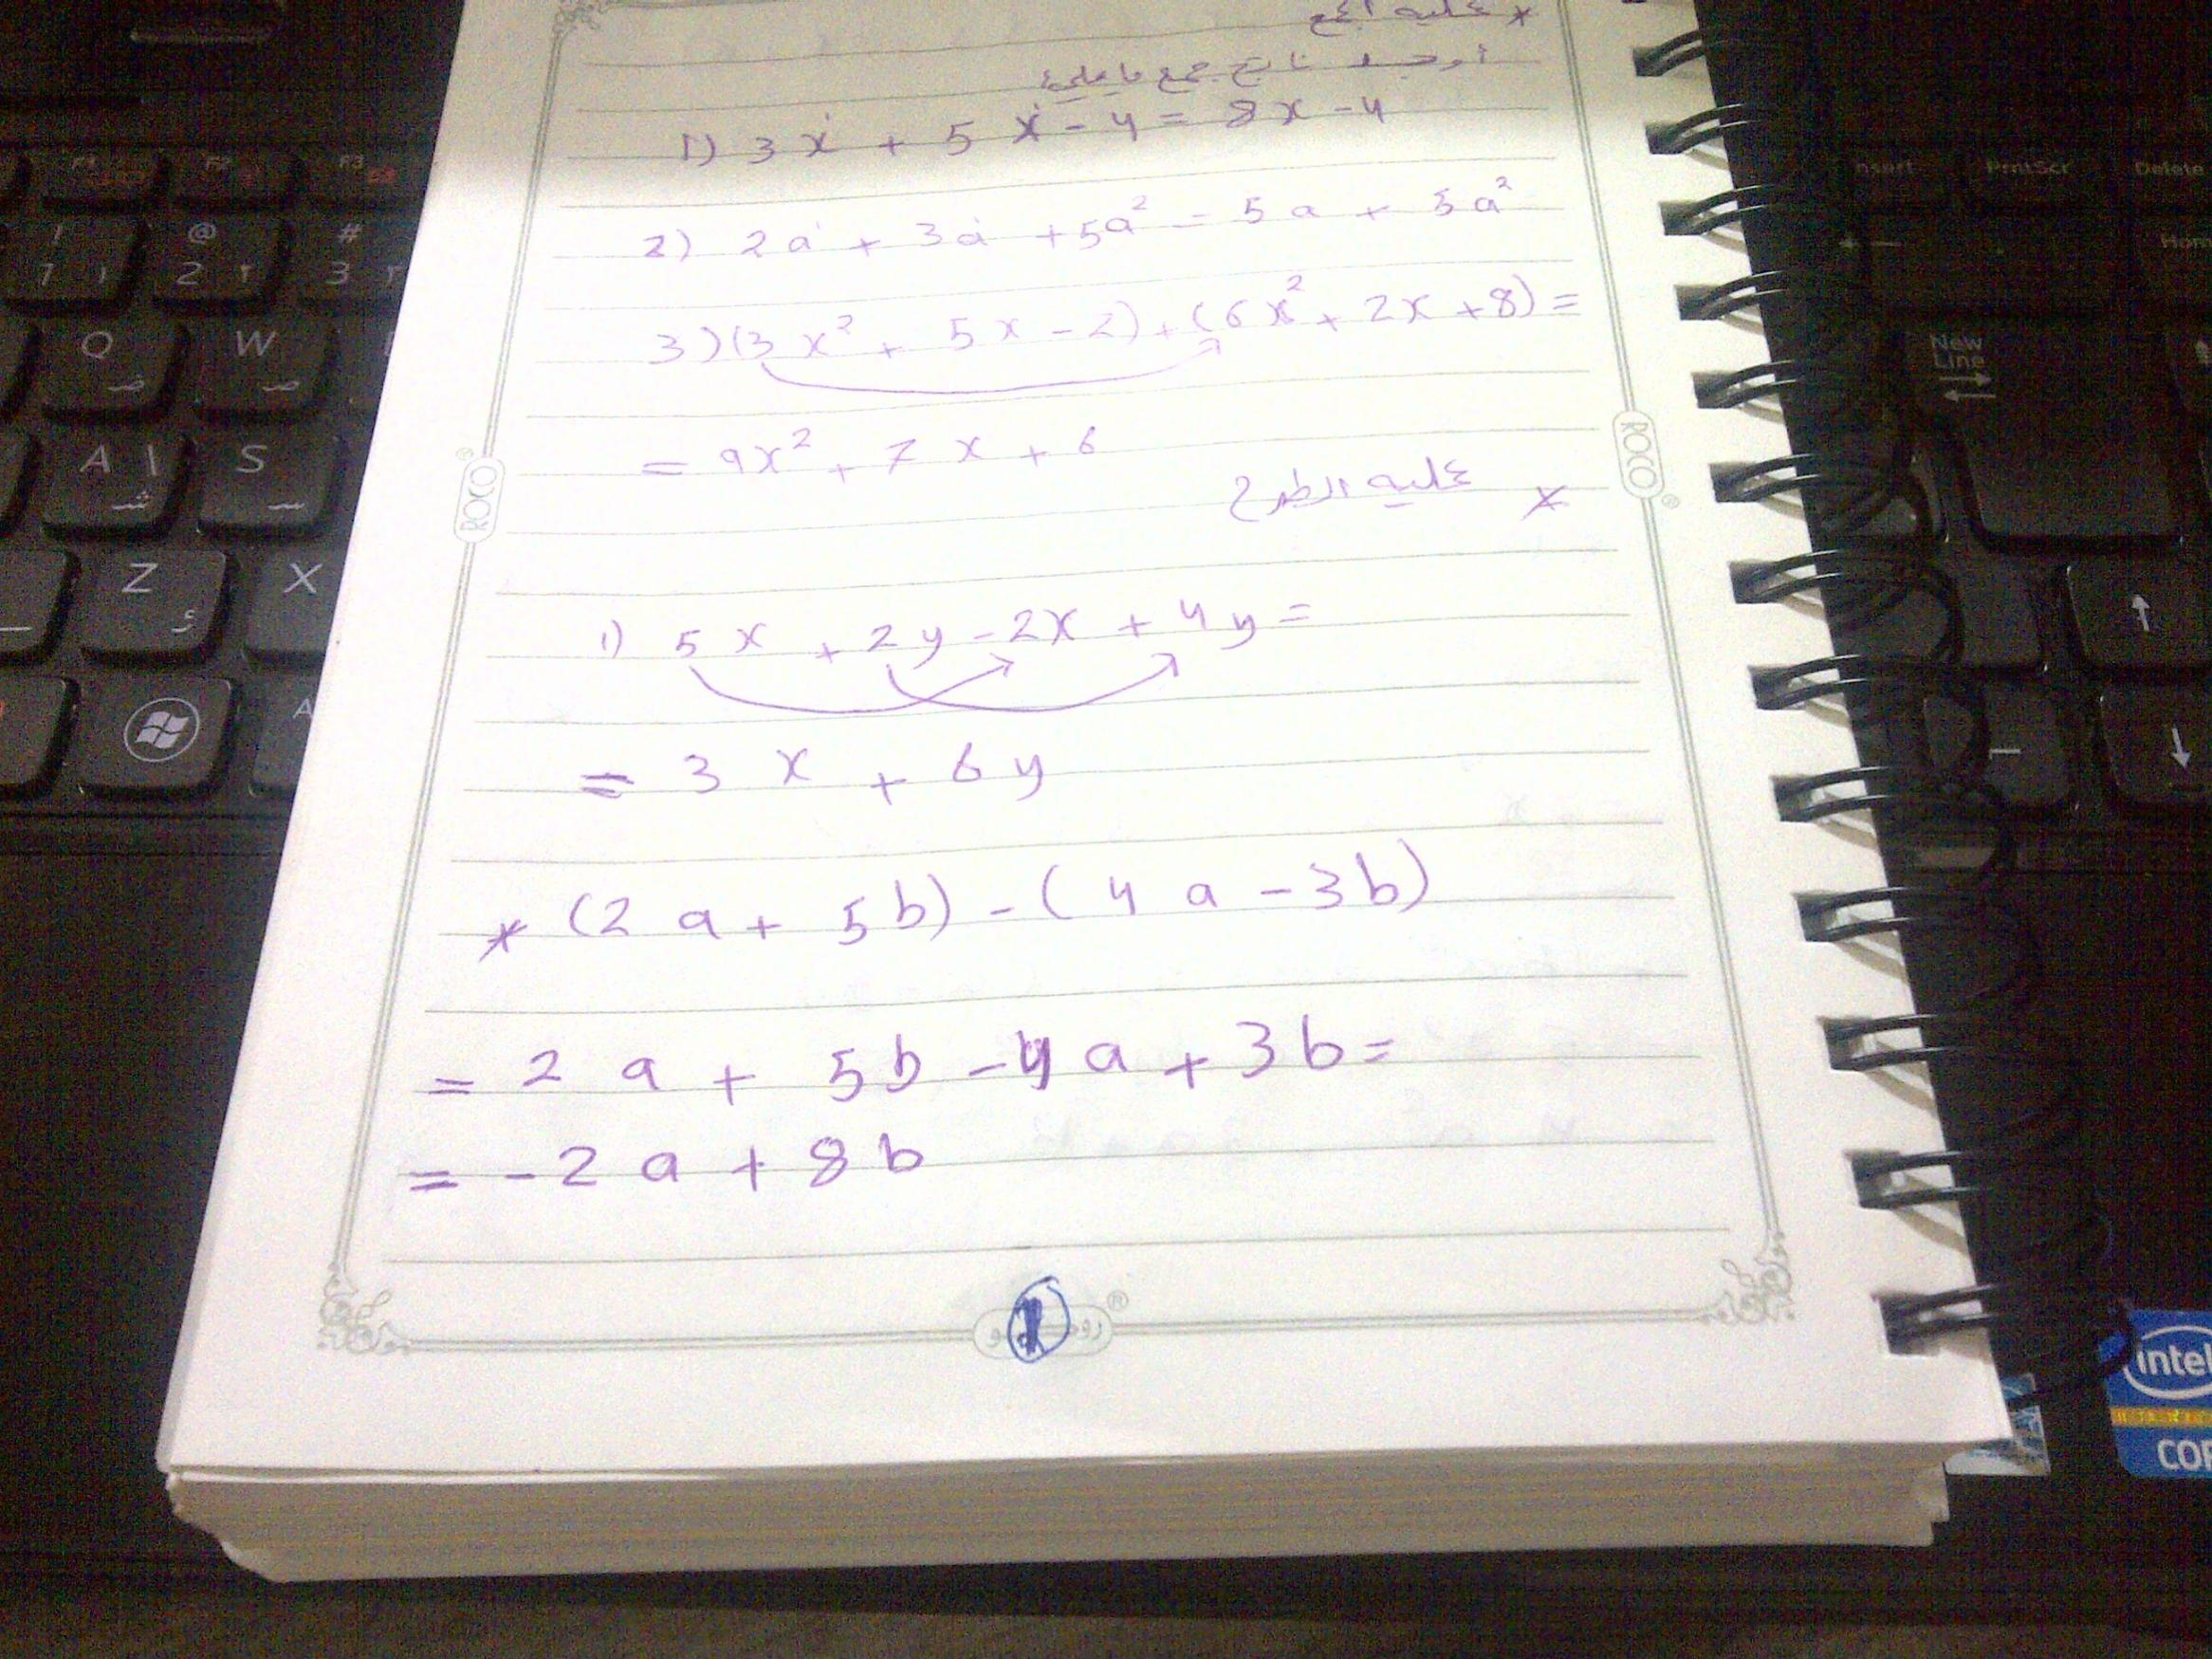 * عمليه الجمع
أوجد ناتج جمع ما يلي:
1) 3x + 5x - 4 = 8x - 4
2) 2a + 3a + 5a² = 5a + 5a²
3) (3x² + 5x - 2) + (6x² + 2x + 8) =
= 9x² + 7x + 6
* عمليه الطرح
1) 5x + 2y - 2x + 4y =
= 3x + 6y
* (2a + 5b) - (4a - 3b)
= 2a + 5b - 4a + 3b =
= -2a + 8b
1
ROCO
ROCO
F1
F2
F3
! 1 ١
@ 2 ٢
# 3 ٣
Q ض
W ص
A ش
S س
Z ئ
X
A
Insert
PrntScr
Delete
Hom
New Line
intel
COR